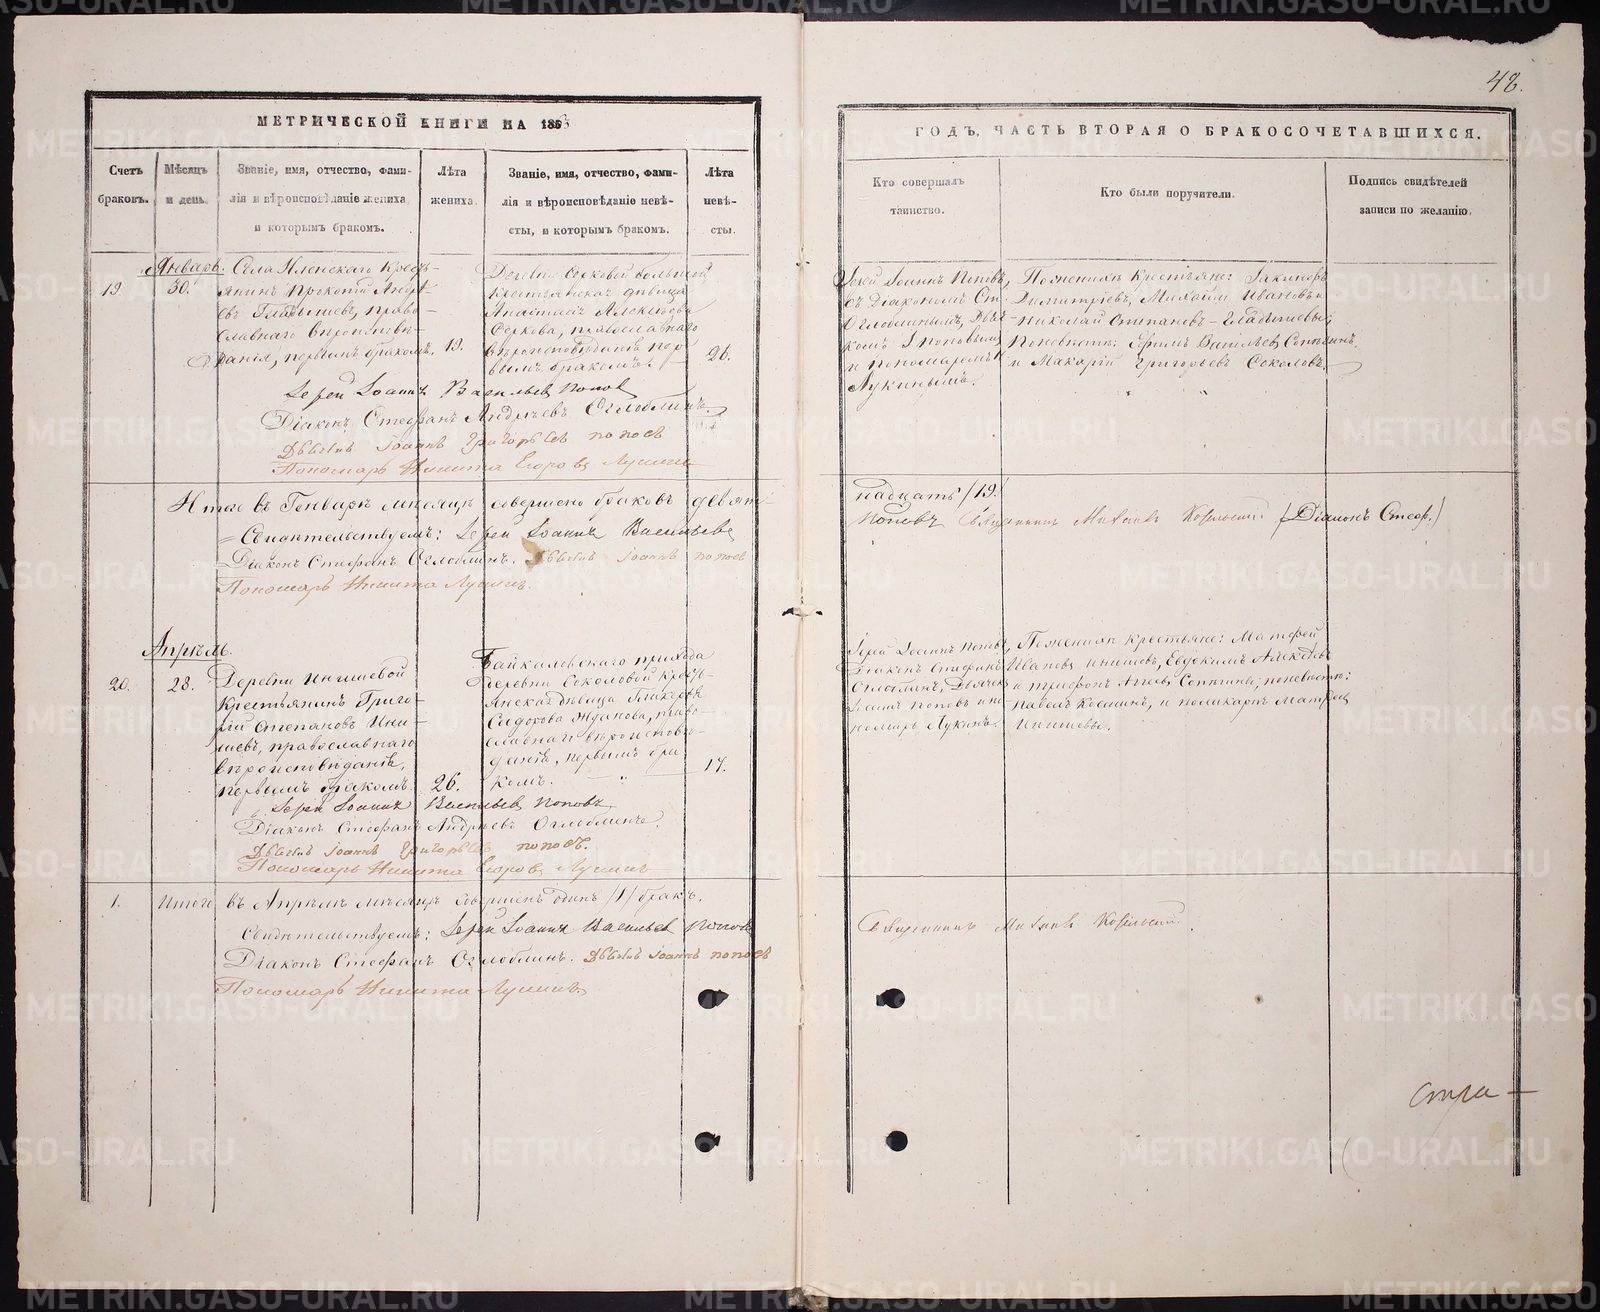 48.
МЕТРИЧЕСКОЙ КНИГИ НА 1863
ГОДЪ, ЧАСТЬ ВТОРАЯ О БРАКОСОЧЕТАВШИХСЯ.
Счетъ браковъ.
Мѣсяцъ и день.
Званіе, имя, отчество, фами-
лія и вѣроисповѣданіе жениха
и которымъ бракомъ.
Лѣта жениха.
Званіе, имя, отчество, фами-
лія и вѣроисповѣданіе невѣ-
сты, и которымъ бракомъ.
Лѣта невѣ-
сты.
Кто совершалъ
таинство.
Кто были поручители.
Подпись свидѣтелей
записи по желанію.
Январь.
19.
30.
Села Кленскаго Кресть-
янинъ Прокопій Андре-
евъ Гладышевъ, право-
славнаго вѣроисповѣ-
данія, первымъ бракомъ.
19.
Деревни Серковой
Крестьянская дѣвица
Анастасія Алексѣева
Серкова, православнаго
вѣроисповѣданія пер-
вымъ бракомъ.
26.
Іерей Іоаннъ Поповъ,
съ Діакономъ Ст.
Оглоблинымъ, Дьяч-
комъ І Поповымъ
и пономаремъ Н
Лукинымъ.
По женихѣ Крестьяне:
Димитріевъ, Михаилъ Ивановъ и
Николай Степановъ – Гладышевы;
По невѣстѣ: Ефимъ Васильевъ
и Макарій Григорьевъ Соколовъ.
Іерей Іоаннъ Васильевъ Попов
Діаконъ Стефанъ Андрѣевъ Оглоблинъ.
Дьячекъ Іоаннъ Григорьевъ Поповъ
Пономарь Никита Егоровъ Лукинъ
Итого въ Генварѣ мѣсяцѣ совершено браковъ девят-
надцать /19./
Свидѣтельствуемъ: Іерей Іоаннъ Васильевъ
Поповъ Священникъ Михаилъ /Діаконъ Стеф./
Діаконъ Стефанъ Оглоблинъ. Дьячекъ Іоаннъ Поповъ
Пономарь Никита Лукинъ.
Апрѣль.
20.
28.
Деревни Инишевой
Крестьянинъ Григо-
рій Степановъ Ини-
шевъ, православнаго
вѣроисповѣданія,
первымъ бракомъ.
26.
Байкаловскаго прихода
деревни Соколовой Кресть-
янская дѣвица Гликерія
Сидорова Жданова, право-
славнаго вѣроисповѣ-
данія, первымъ бра-
комъ.
17.
Іерей Іоаннъ Поповъ,
Діаконъ Стефанъ
Оглоблинъ, Дьячекъ
Іоаннъ Поповъ и по-
номарь Лукинъ.
По женихѣ Крестьяне: Матфей
Ивановъ Инишевъ, Евдокимъ Алексѣевъ
и Трифонъ по невѣстѣ:
Павелъ Космин, и Поликарпъ
Инишевы.
Іерей Іоаннъ Васильевъ Поповъ
Діаконъ Стефанъ Андрѣевъ Оглоблинъ.
Дьячекъ Іоаннъ Григорьевъ Поповъ.
Пономарь Никита Егоровъ Лукинъ
1.
Итого въ Апрѣлѣ мѣсяцѣ совершенъ одинъ /1/ бракъ.
Свидѣтельствуемъ: Іерей Іоаннъ Васильевъ Поповъ
Священникъ Михаилъ
Діаконъ Стефанъ Оглоблинъ. Дьячекъ Іоаннъ Поповъ
Пономарь Никита Лукинъ.
METRIKI.GASO-URAL.RU